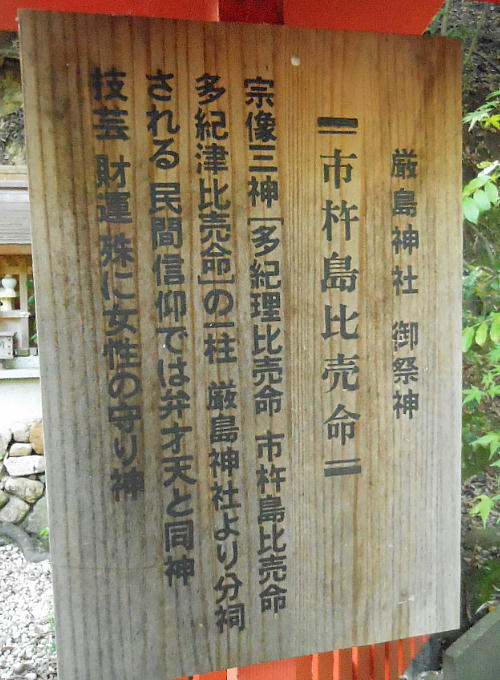 厳島神社 御祭神
市杵島比売命
宗像三神[多紀理比売命 市杵島比売命
多紀津比売命]の一柱 厳島神社より分祠
される 民間信仰では弁才天と同神
技芸 財運 殊に女性の守り神